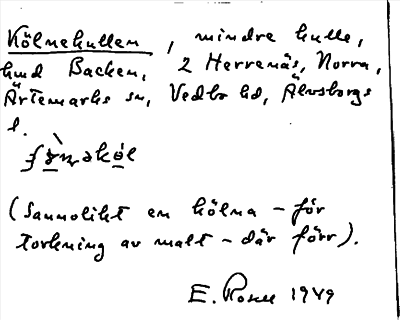 Kölnekullen, mindre kulle,
hmd Backen, 2 Herrenäs, Norra,
Ärtemarks sn, Vedbo hd, Älvsborgs
l.
(Sannolikt en kölna – för
torkning av malt – där förr).
E. Rosell 1949